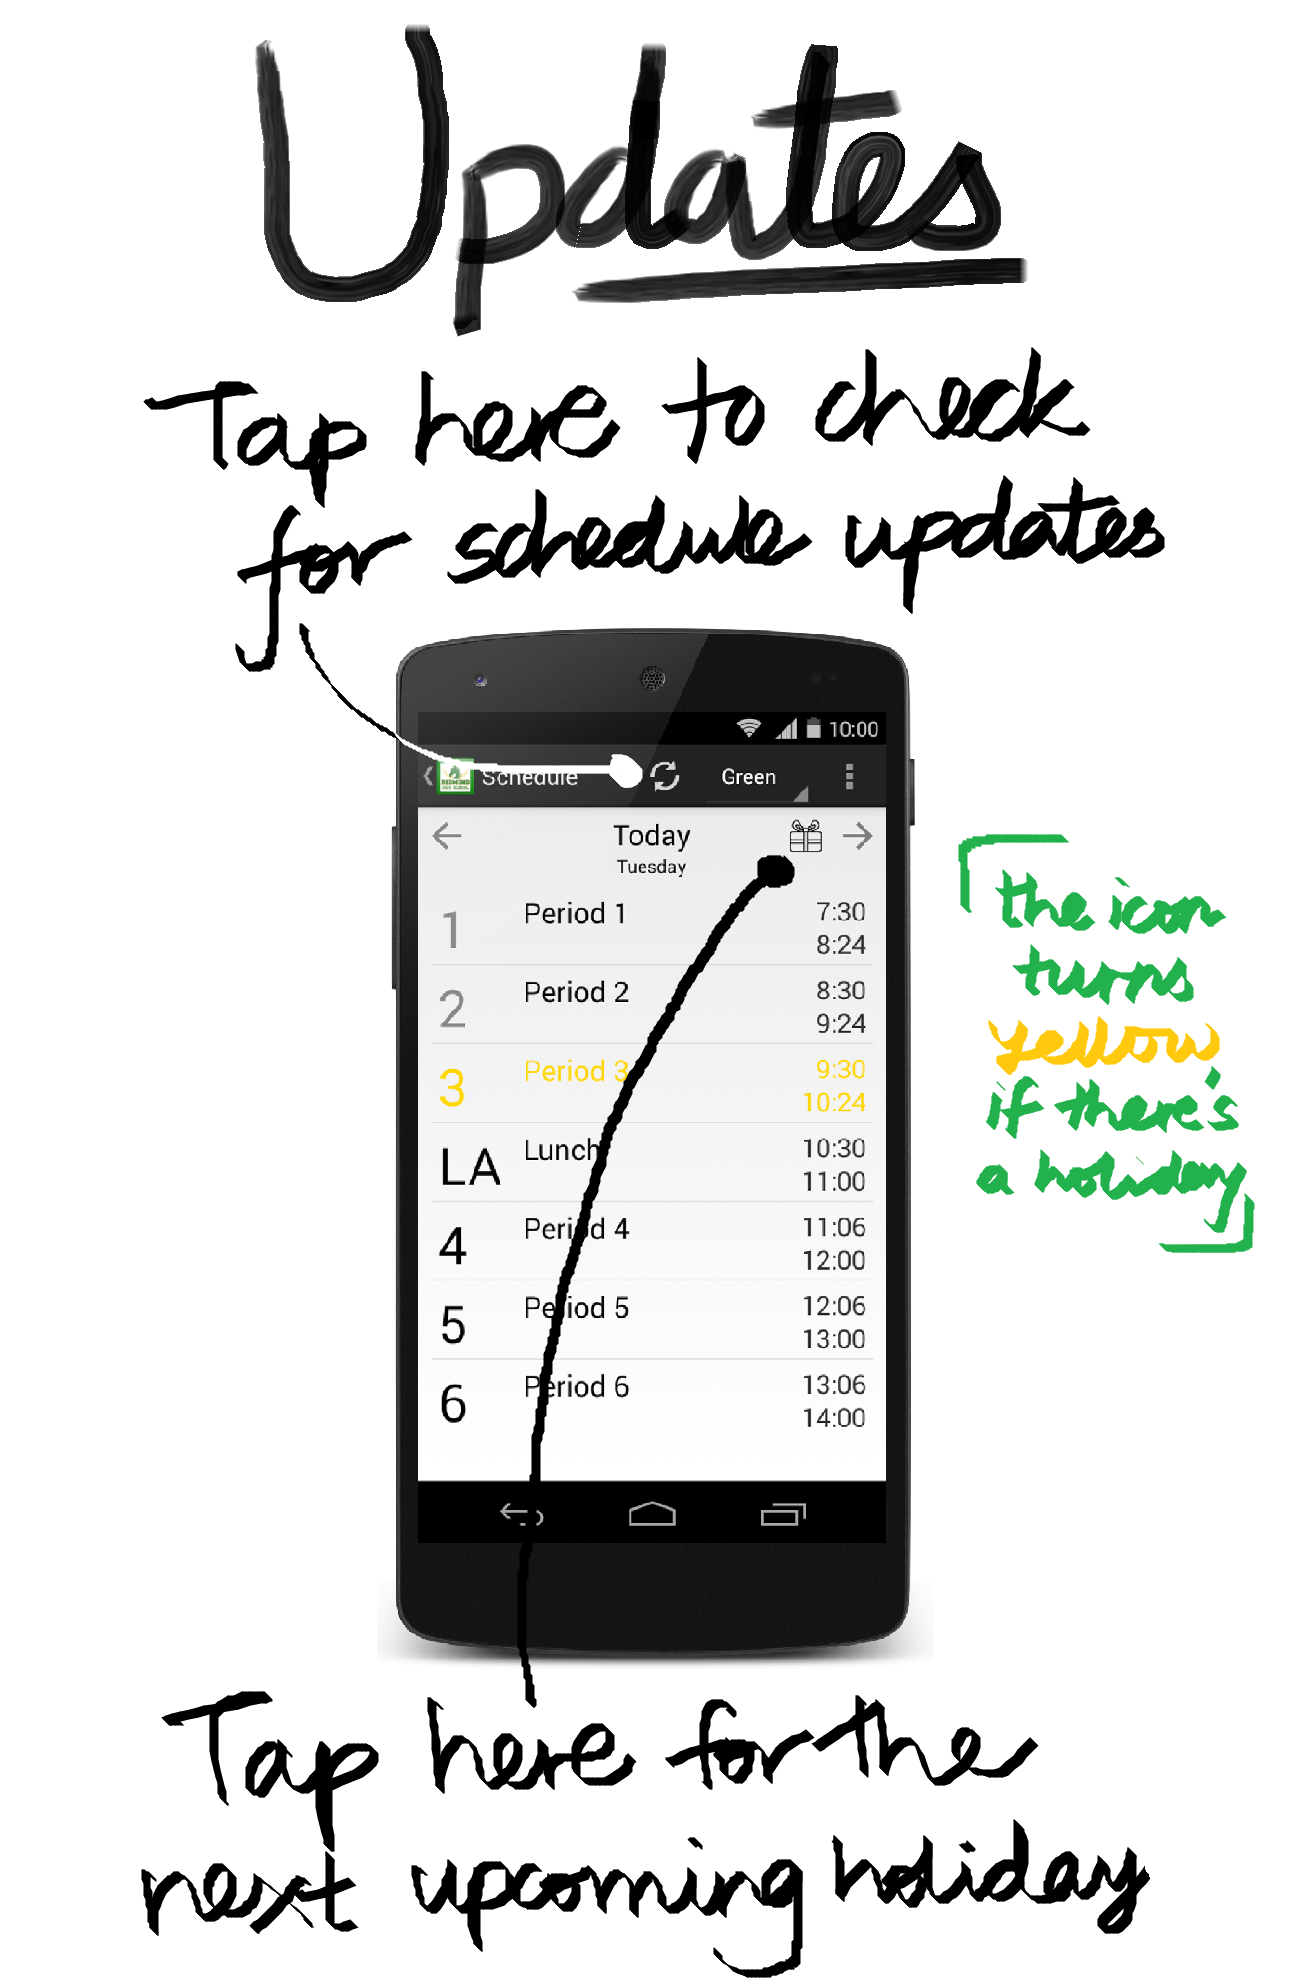 Updates
Tap here to check
for schedule updates
10:00
REDMOND
Schedule
Green
Today
Tuesday
1 Period 1 7:30
8:24
2 Period 2 8:30
9:24
3 Period 3 9:30
10:24
LA Lunch 10:30
11:00
4 Period 4 11:06
12:00
5 Period 5 12:06
13:00
6 Period 6 13:06
14:00
the icon
turns
yellow
if there's
a holiday
Tap here for the
next upcoming holiday